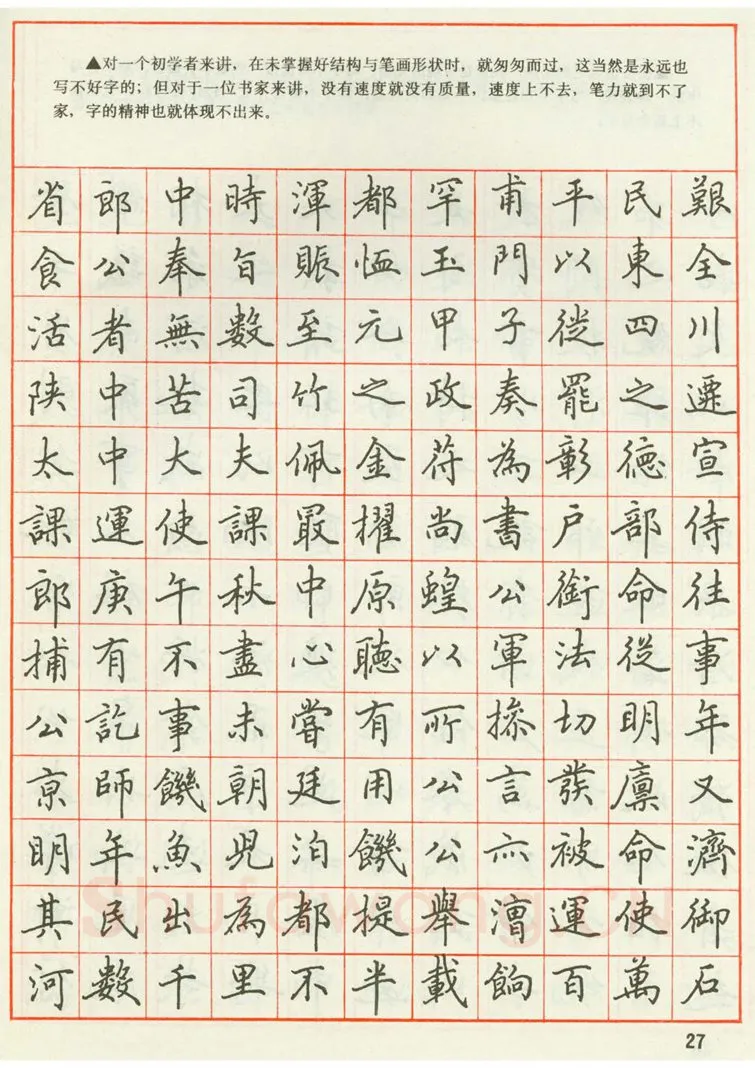 ▲对一个初学者来讲，在未掌握好结构与笔画形状时，就匆匆而过，这当然是永远也
写不好字的；但对于一位书家来讲，没有速度就没有质量，速度上不去，笔力就到不了
家，字的精神也就体现不出来。
省郎中時渾都罕甫平民艱
食公奉旨賑恤玉門以東全
活者無數至元甲子從四川
陝中苦司竹之政奏罷之遷
太中大夫佩金符為彰德宣
課運使課最擢尚書戶部侍
郎庚午秋中原蝗公銜命往
捕有不盡心聽以軍法從事
公訖事未嘗有所摻切明年
京師饑朝廷用公言發廩又
明年魚兒泊饑公亦被命濟
其民出為都提舉漕運使御
河數千里不半載餉百萬石
Shufawang.CN
27